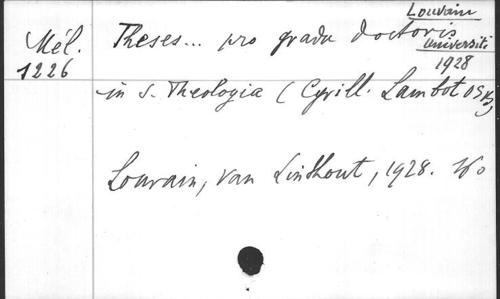 Louvain
Mél. Theses... pro gradu doctoris Universiti
1226 1928
in S. Theologia (Cyrill. Lambot OSB)
Louvain, van Linthout, 1928.